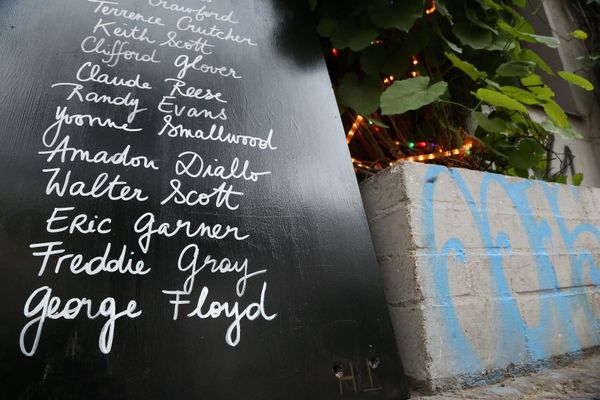 Crawford
Terrence Crutcher
Keith Scott
Clifford Glover
Claude Reese
Randy Evans
Yvonne Smallwood
Amadou Diallo
Walter Scott
Eric Garner
Freddie Gray
George Floyd